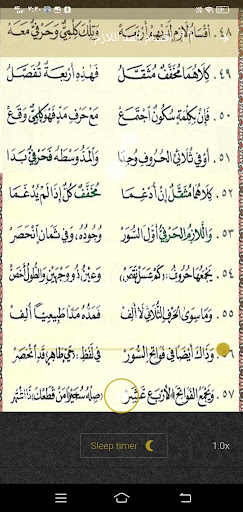 ٢:٢٠
٤٨. أَقْسَامُ لَازِمٍ لَدَيْهِمْ أَرْبَعَةْ وَتِلْكَ كِلْمِيٌّ وَحَرْفِيٌّ مَعَهْ
٤٩. كِلَاهُمَا مُخَفَّفٌ مُثَقَّلُ فَهَذِهِ أَرْبَعَةٌ تُفَصَّلُ
٥٠. فَإِنْ بِكِلْمَةٍ سُكُونٌ اجْتَمَعْ مَعْ حَرْفِ مَدٍّ فَهْوَ كِلْمِيٌّ وَقَعْ
٥١. أَوْ فِي ثُلَاثِيِّ الْحُرُوفِ وُجِدَا وَالْمَدُّ وَسْطَهُ فَحَرْفِيٌّ بَدَا
٥٢. كِلَاهُمَا مُثَقَّلٌ إِنْ أُدْغِمَا مُخَفَّفٌ كُلٌّ إِذَا لَمْ يُدْغَمَا
٥٣. وَاللَّازِمُ الْحَرْفِيُّ أَوَّلَ السُّوَرْ وُجُودُهُ، وَفِي ثَمَانٍ انْحَصَرْ
٥٤. يَجْمَعُهَا حُرُوفُ: (كَمْ عَسَلْ نَقَصْ) وَعَيْنُ ذُو وَجْهَيْنِ وَالطُّولُ أَخَصْ
٥٥. وَمَا سِوَى الْحَرْفِ الثُّلَاثِي لَا أَلِفْ فَمَدُّهُ مَدًّا طَبِيعِيًّا أُلِفْ
٥٦. وَذَاكَ أَيْضًا فِي فَوَاتِحِ السُّوَرْ فِي لَفْظِ: (حَيٍّ طَاهِرٍ) قَدْ انْحَصَرْ
٥٧. وَيَجْمَعُ الْفَوَاتِحَ الْأَرْبَعْ عَشَرْ (صِلْهُ سُحَيْرًا مَنْ قَطَعْكَ) ذَا اشْتَهَرْ
Sleep timer 1.0x